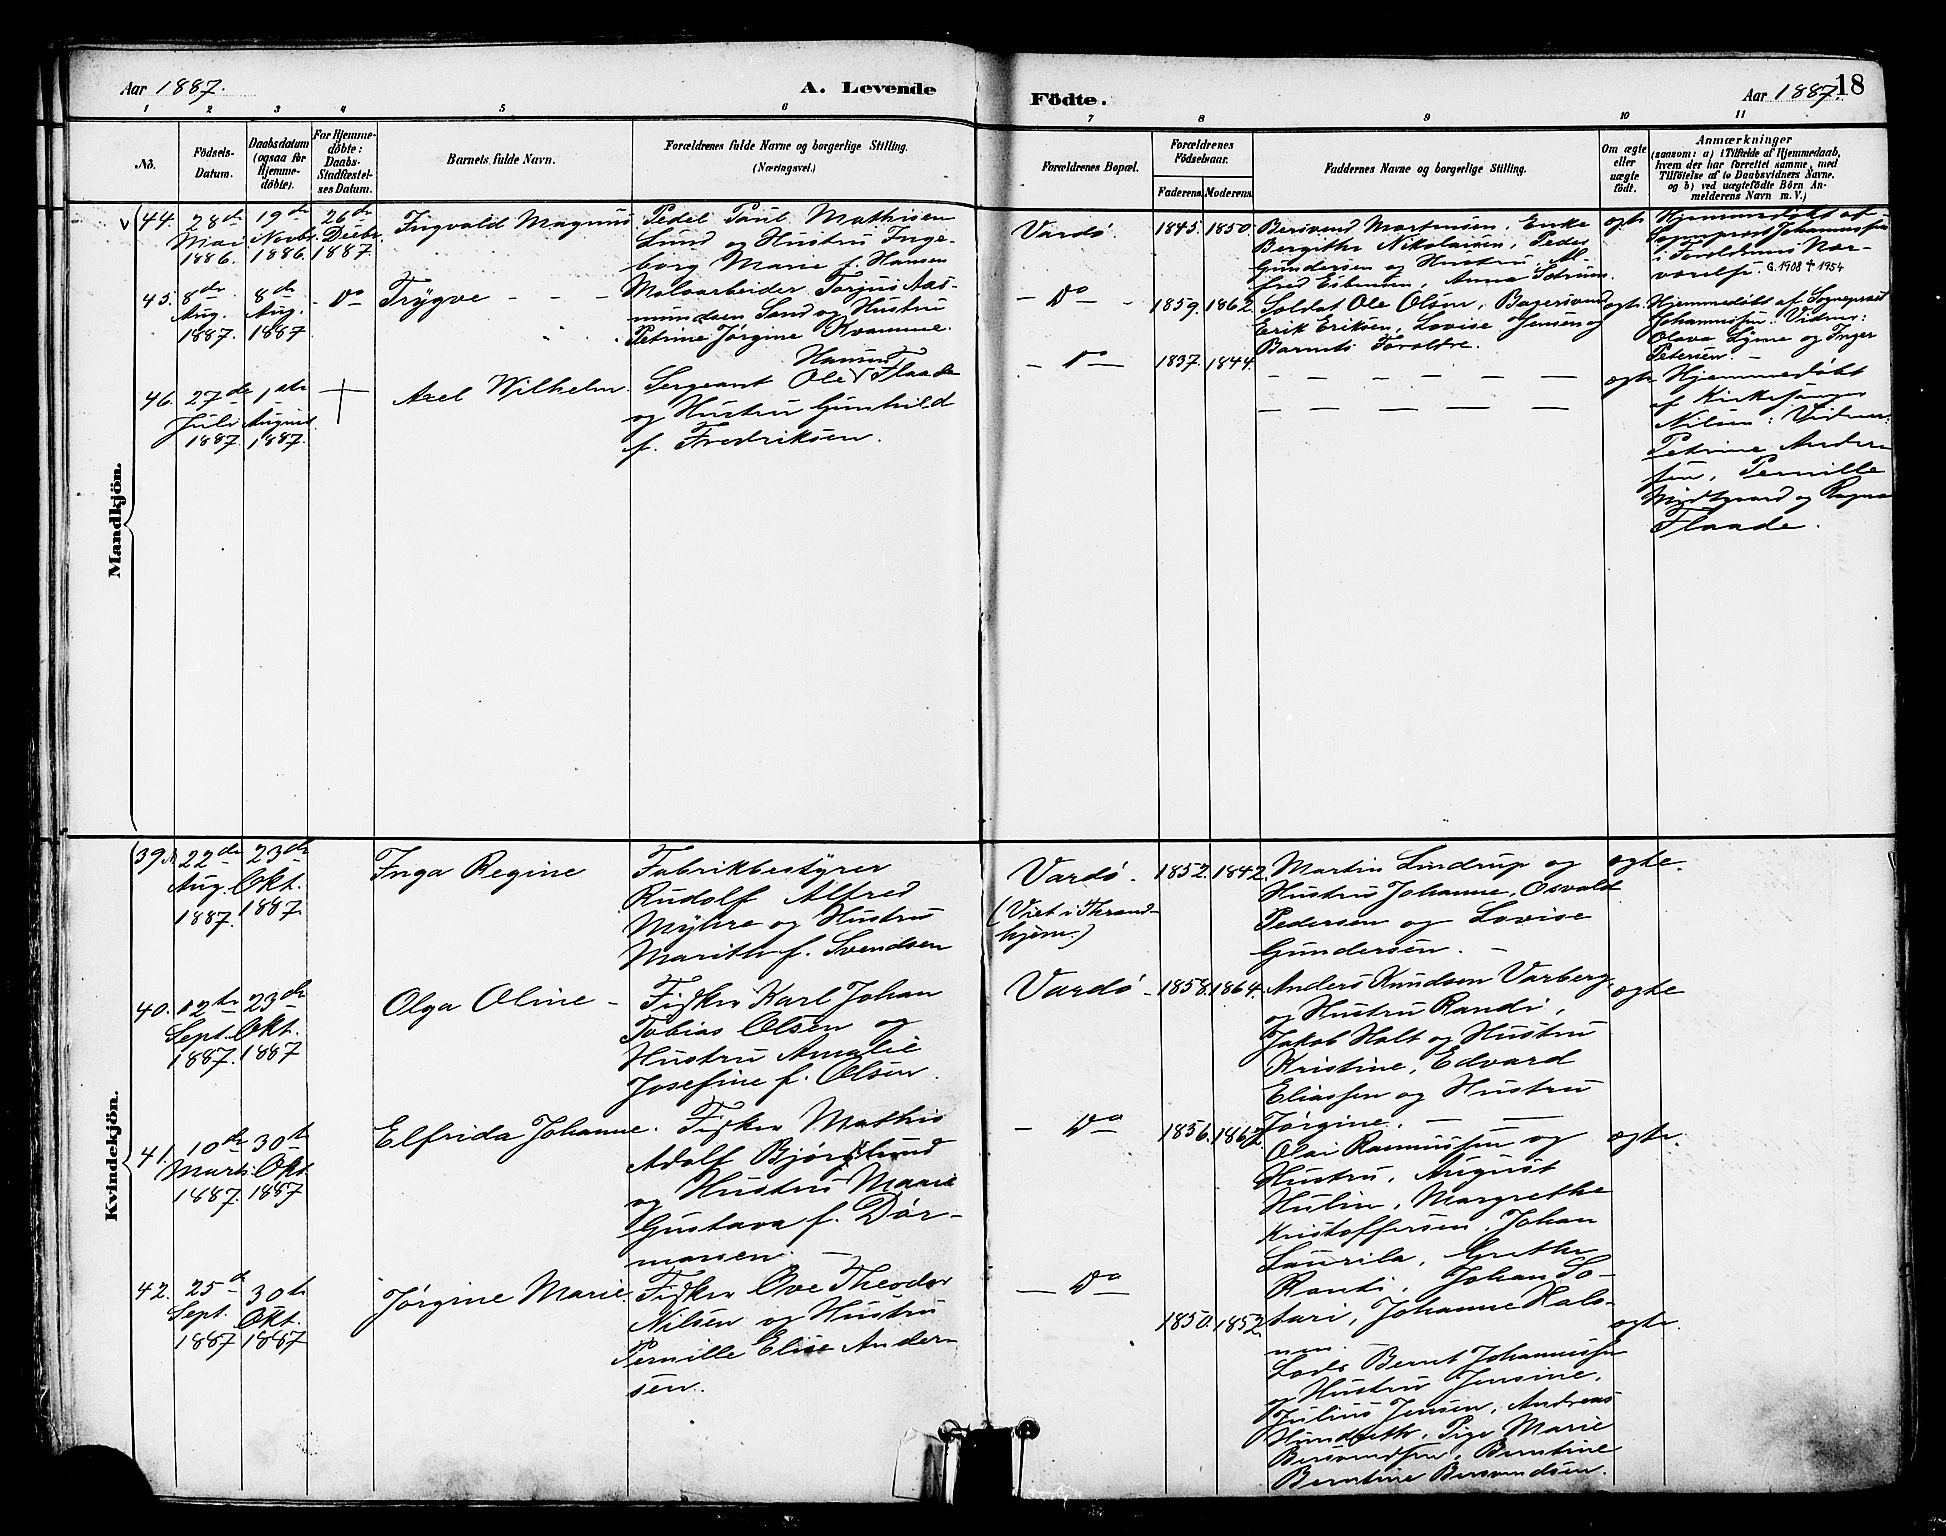 Aar 1887.
A. Levende
Födte.
Aar 1887.
18
1 2 3 4 5 6 7 8 9 10 11
No.
Födsels-
Datum.
Daabsdatum
(ogsaa for
Hjemme-
döbte).
For Hjemme-
döbte:
Daabs-
Stadfæstel-
ses Datum.
Barnets fulde Navn.
Forældrenes fulde Navne og borgerlige Stilling.
(Næringsvei.)
Forældrenes Bopæl.
Forældrenes
Födselsaar.
Faderens. Moderens.
Faddernes Navne og borgerlige Stilling.
Om ægte
eller
uægte
födt.
Anmærkninger
(saasom: a) i Tilfælde af Hjemmedaab,
hvem der har forrettet samme, med
Tilföielse af to Daabsvidners Navne,
og b) ved uægtefödte Börn An-
melderens Navn m. V.)
Mandkjön.
44.
28de
Mai
1886.
19de
Novbr.
1886.
26de
Decbr.
1887.
Ingvald Magnus
Pedel Paul Mathisen
Lund og Hustru Inge-
borg Marie f. Hansen
Vardø
1845. 1850.
Bersvend Mortensen, Enke
Bergithe Nikolaisen, Peder
Gundersen og Hustru, Al-
fred Esbensen, Anna Sotrum.
ægte
Hjemmedøbt af
Sognepræst Johannessen
i Forældrenes Nær-
værelse. G. 1908 † 1954
45.
8de
Aug.
1887.
8de
Aug.
1887
- Do
Trygve - - -
Malvarbeider Torjus Aas-
mundsen Sand og Hustru
Petrine Jørgine Kvamme.
- Do -
1859. 1862.
Soldat Ole Olsen, Bagersvend
Erik Eriksen, Lovise Jensen og
Barnets Forældre.
ægte.
Hjemmedøbt af Sognepræst
Johannessen. Vidner:
Olava Lynne og Inger
Petersen. -
46.
27de
Juli
1887.
1ste
August
1887.
†
Axel Wilhelm.
Hansen
Sergeant Ole V Flaade
og Hustru Gunhild
f. Fredriksen.
- Do -
1837. 1844.
- - - - - -
- - - - - -
ægte
Hjemmedøbt
af Kirkesanger
Nilsen: Vidner:
Petrine Ander-
sen, Pernille
Midtgaard og Ragna
Flaade.
Kvindekjön.
39.
22de
Aug.
1887.
23de
Okt.
1887.
Inga Regine
Fabrikbestyrer
Rudolf Alfred
Myhre og Hustru
Marith f. Svendsen
Vardø.
(Viet i Thrond-
hjem.)
1852. 1842.
Martin Lindrup og
Hustru Johanne, Osvald
Pedersen og Lovise
Gundersen. -
ægte.
40.
12te
Sept.
1887.
23de
Okt.
1887
Olga Oline -
Fisker Karl Johan
Tobias Olsen og
Hustru Amalie
Josefine f. Olsen.
Vardø -
1858. 1864.
Anders Knudsen Varberg
og Hustru Randi,
Jakob Holt og Hustru
Kristine, Edvard
Eliassen og Hustru
Jørgine. - -
ægte
41.
10de
Marts
1887.
30te
Okt.
1887
Elfrida Johanne.
Fisker Mathis
Adolf Bjørklund
og Hustru Maria
Gustava f. Dør-
mænen. -
- Do
1856. 1862.
Olai Rasmussen og
Hustru, August
Hulin, Margrethe
Kristoffersen, Johan
Laurila, Grethe
Ranti, Johan So-
tari, Johanne Hals-
nen.
ægte.
42.
25de
Sept.
1887
30te
Okt.
1887
Jørgine Marie
Fisker Ove Theodor
Nilsen og Hustru
Pernille Elise Ander
sen.
- Do -
1850. 1852.
Lods Bernt Johannessen
og Hustru Jensine,
Julius Jensen, Andreas
Hundsether, Pige Marie
Bersvendsen, Berntine
Berntine Bersvendsen.
ægte.